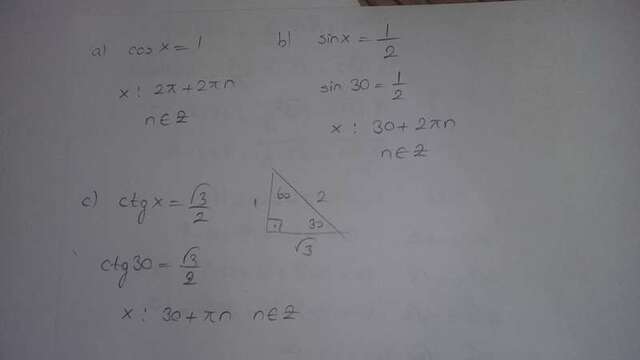 a) cos x = 1
x : 2π + 2πn
n ∈ Z
b) sin x = 1/2
sin 30 = 1/2
x : 30 + 2πn
n ∈ Z
c) ctg x = √3/2
1
60
2
30
√3
ctg 30 = √3/2
x : 30 + πn n ∈ Z